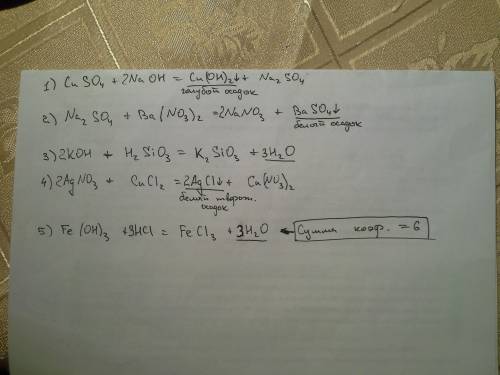 1) CuSO₄ + 2NaOH = Cu(OH)₂↓ + Na₂SO₄
голубой осадок
2) Na₂SO₄ + Ba(NO₃)₂ = 2NaNO₃ + BaSO₄↓
белый осадок
3) 2KOH + H₂SiO₃ = K₂SiO₃ + 3H₂O
4) 2AgNO₃ + CuCl₂ = 2AgCl↓ + Cu(NO₃)₂
белый творож.
осадок
5) Fe(OH)₃ + 3HCl = FeCl₃ + 3H₂O ← Сумма коэф. = 6